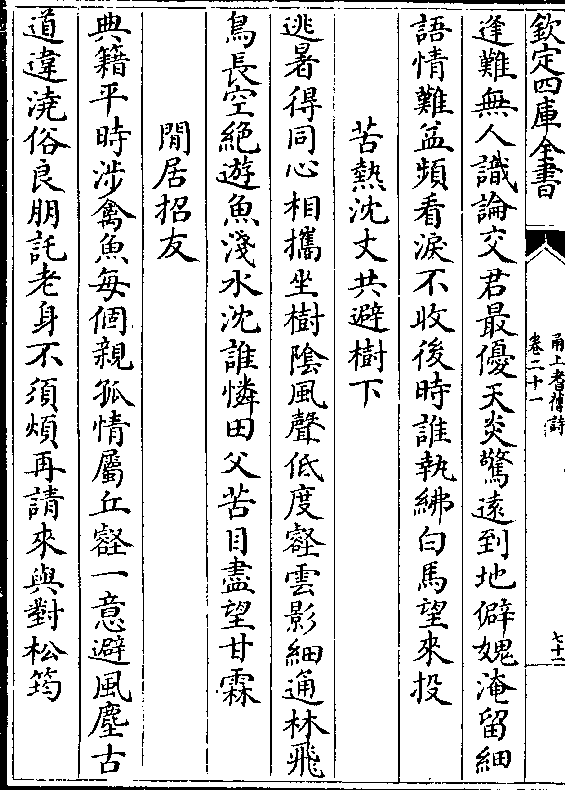 欽定四庫全書
甬上耆舊詩
卷二十一
七十二
逢難無人識論交君最優天炎驚遠到地僻媿淹留細
語情難盆頻看淚不收後時誰執紼白馬望來投
苦熱沈丈共避樹下
逃暑得同心相攜坐樹陰風聲低度壑雲影細通林飛
鳥長空絕遊魚淺水沈誰憐田父苦目盡望甘霖
閒居招友
典籍平時涉禽魚每個親孤情屬丘壑一意避風塵古
道違澆俗良朋託老身不須煩再請來與對松筠